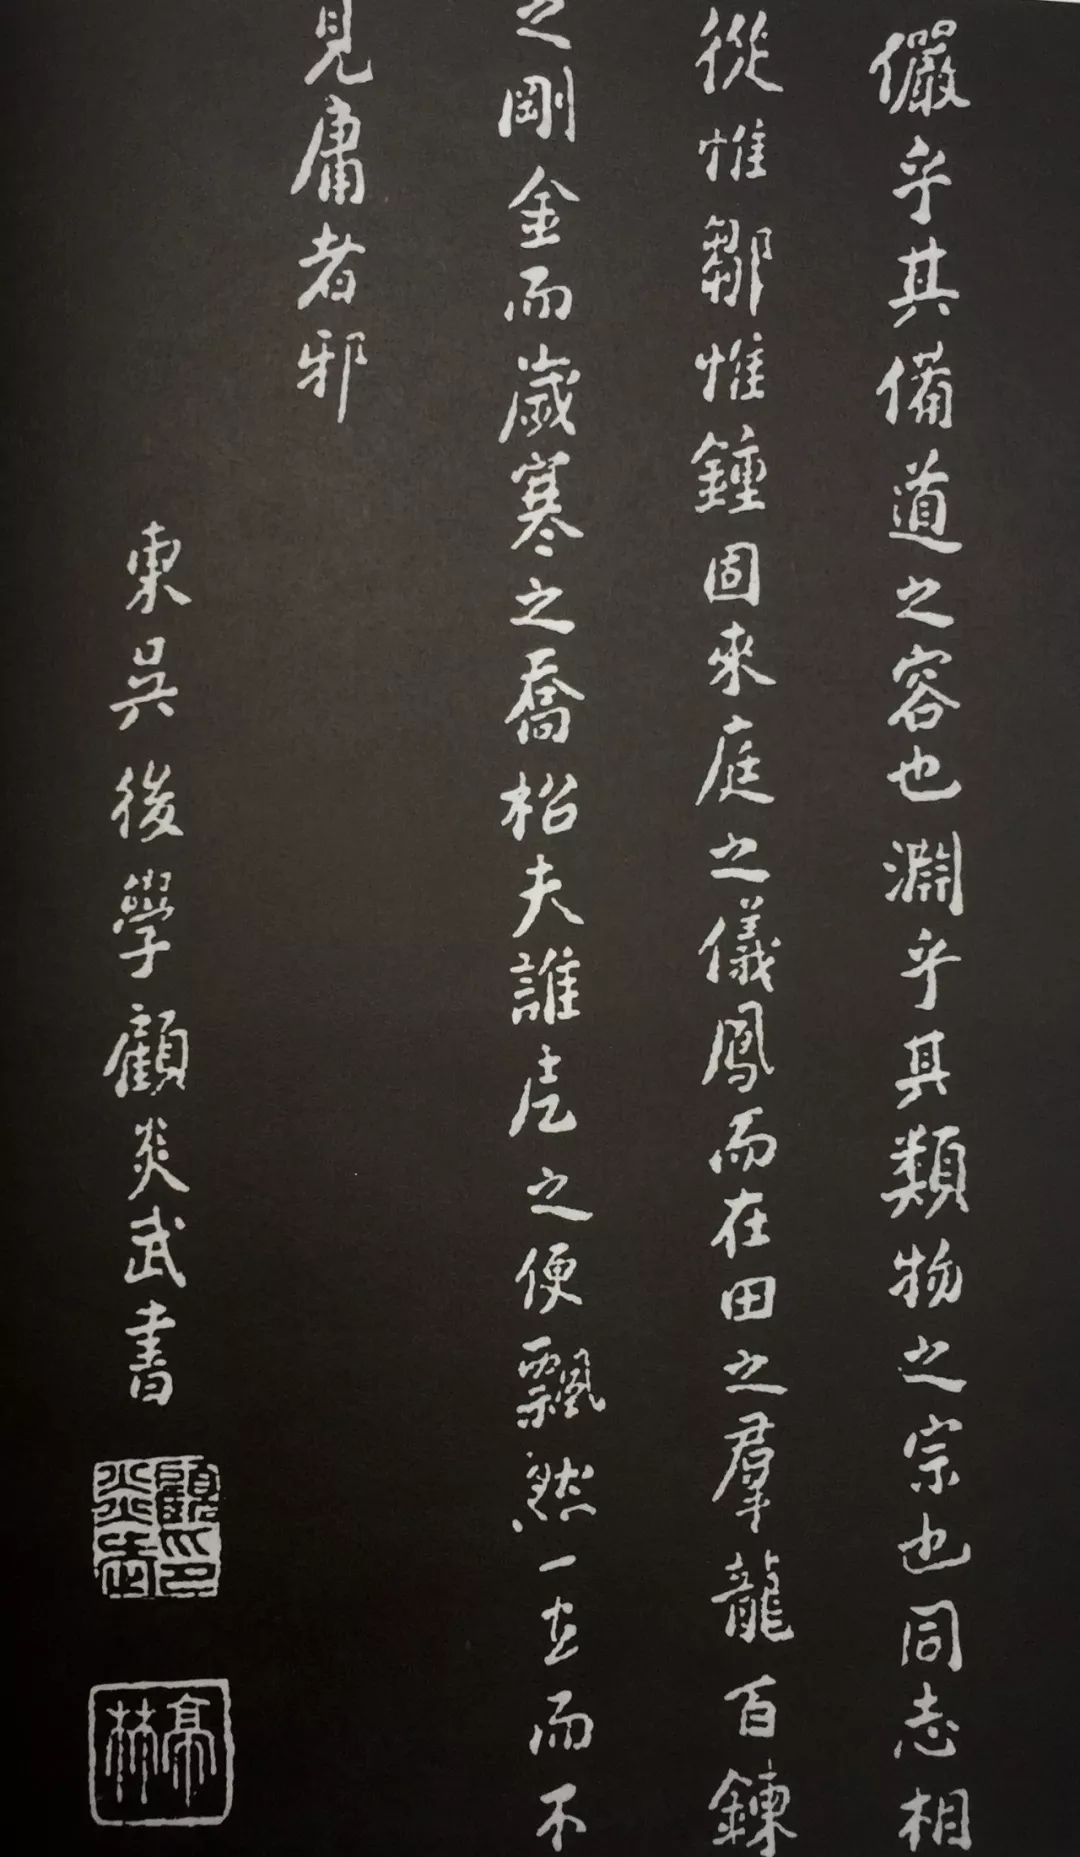 儼乎其備道之容也淵乎其類物之宗也同志相
從惟鄒惟鍾固來庭之儀鳳而在田之羣龍百鍊
之剛金而歲寒之喬松夫誰虐之便飄然一去而不
見庸者邪
東吳後學顧炎武書
顧炎武印
亭林